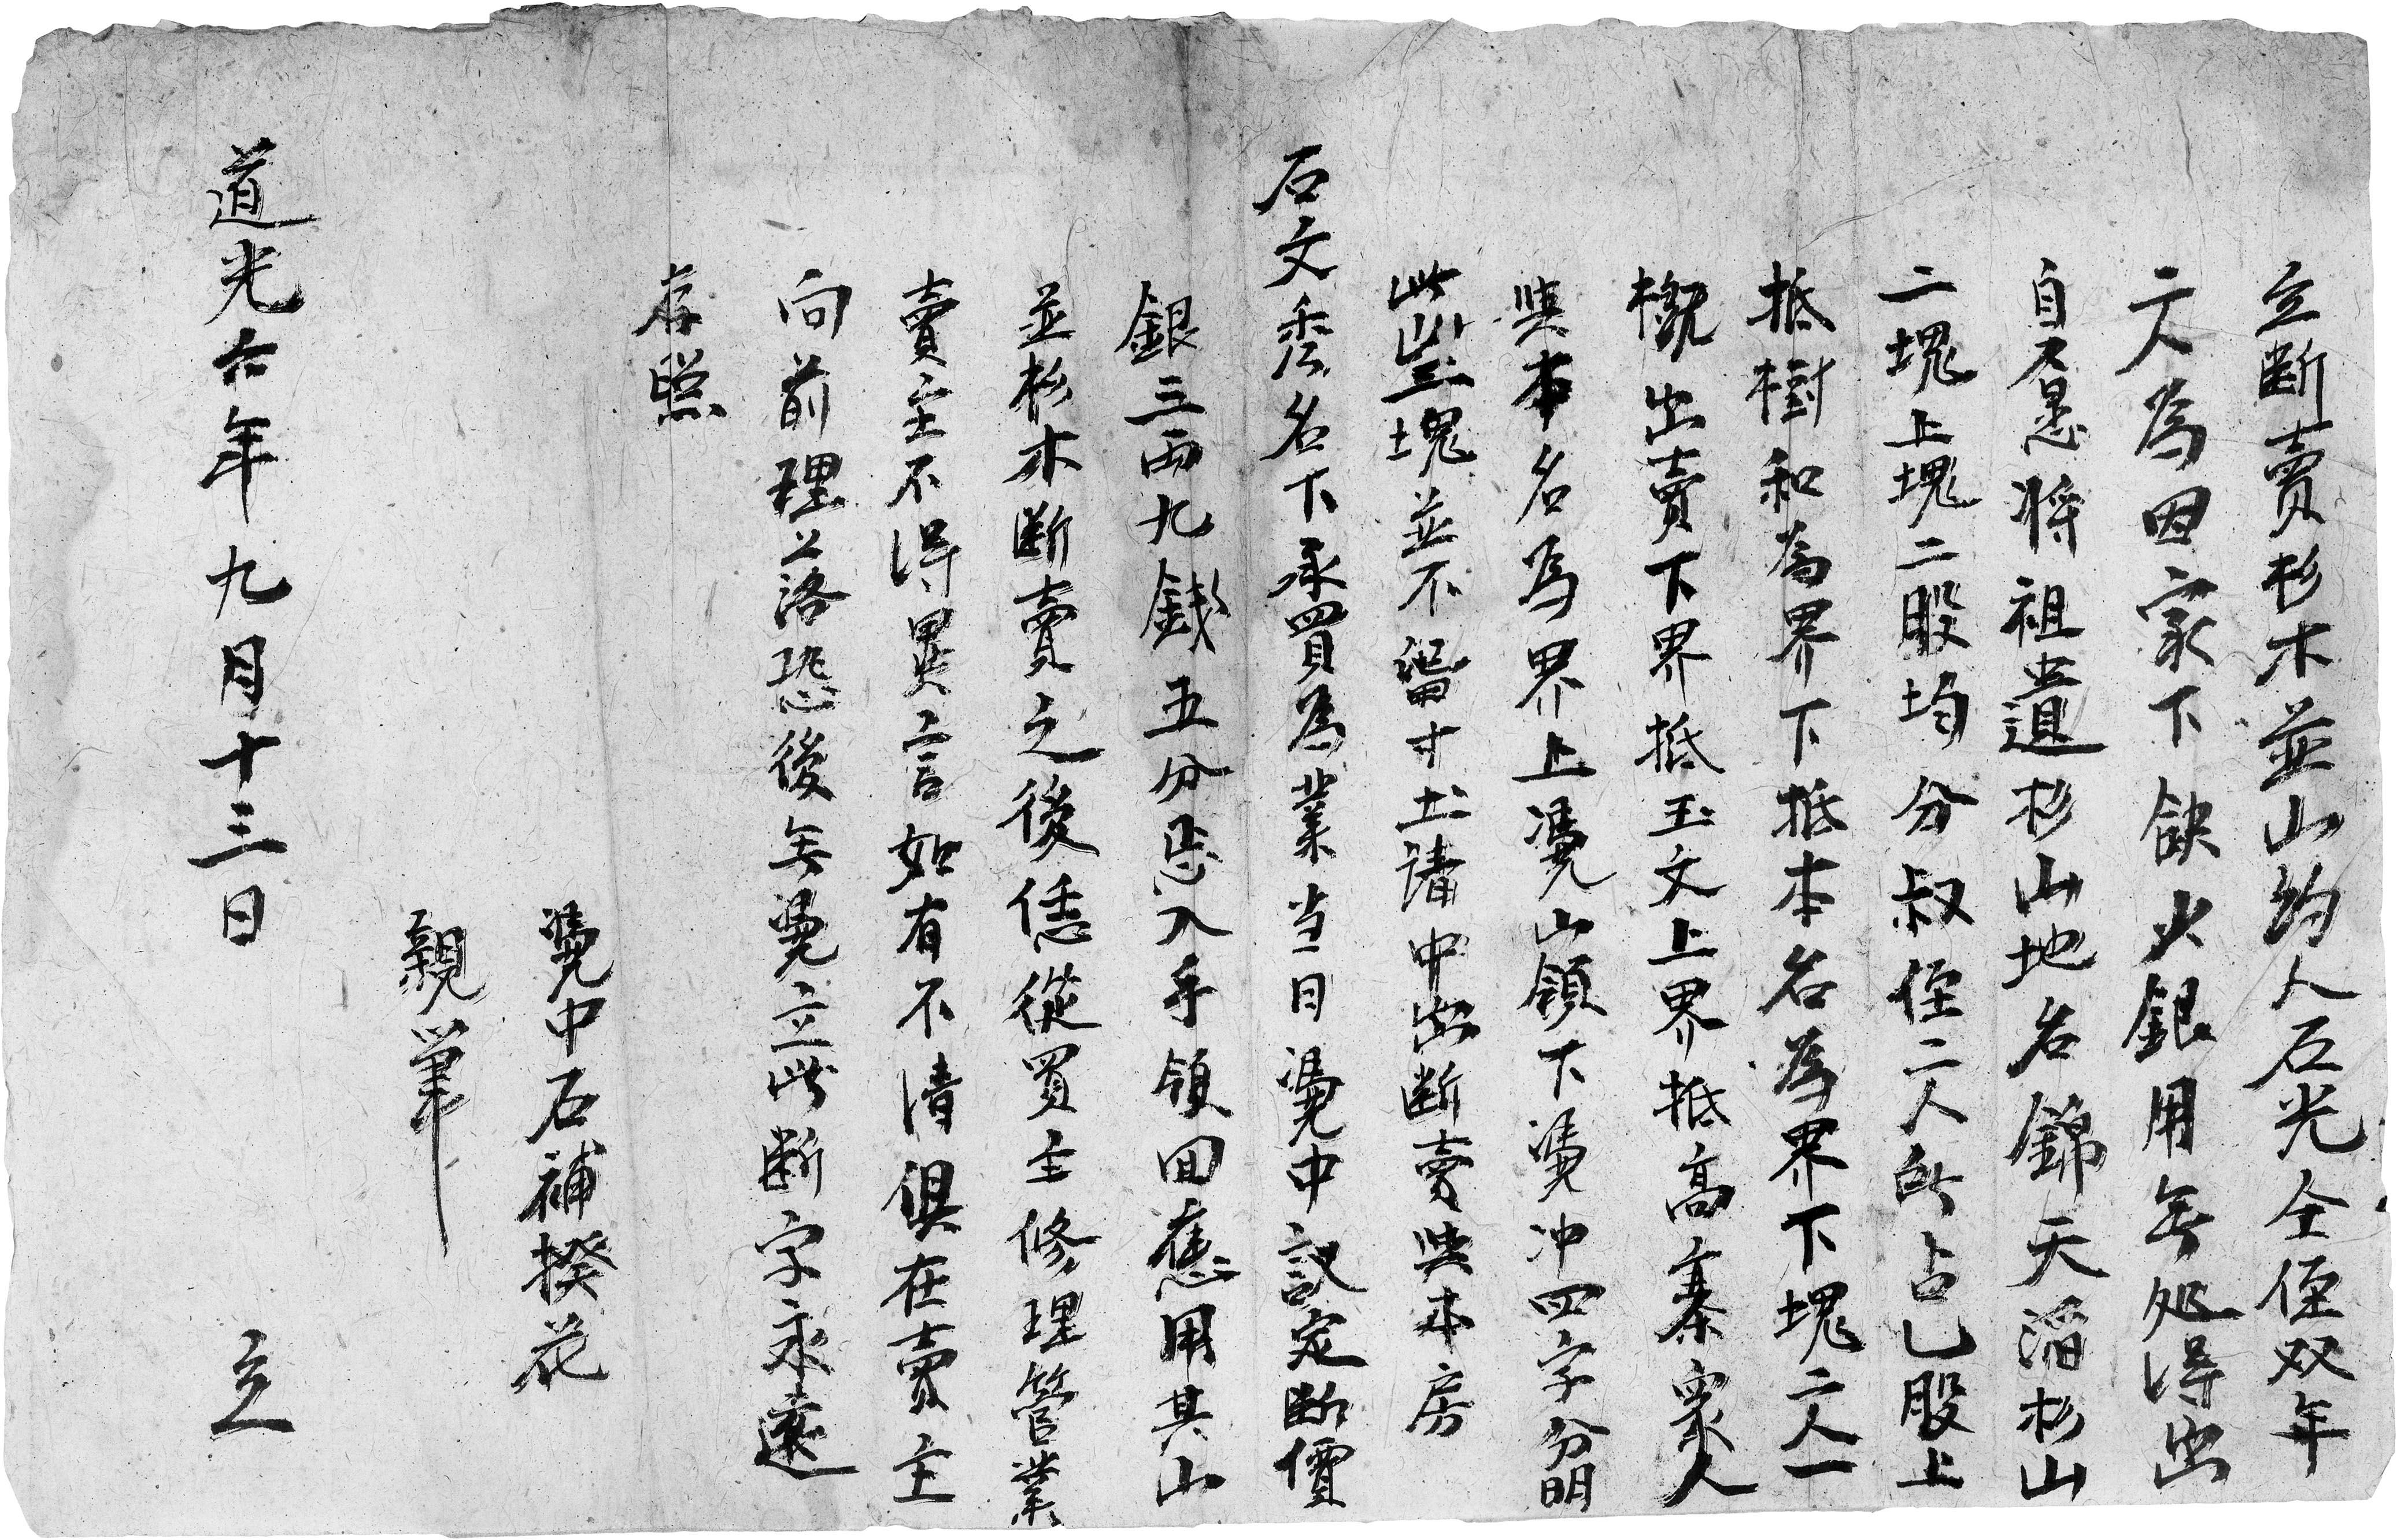 立断賣杉木並山约人石光全侄双年
二人為因家下缺少銀用無処得出
自愿將祖遺杉山地名錦天溜杉山
二塊上塊二股均分叔侄二人所占乙股上
抵樹和為界下抵本名為界下塊二人一
概出賣下界抵玉文上界抵高寨衆人
與本名為界上凴山領下凴冲四字分明
此山二塊並不畱寸土請中出断賣與本房
石文秀名下承買為業当日凴中議定断價
銀三两九錢五分恁入手領回應用其山
並杉木断賣之後恁從買主修理管業
賣主不得異言如有不清俱在賣主
向前理落恐後無凴立此断字永遠
存照
凴中石補揆花
親筆
道光六年九月十三日 立